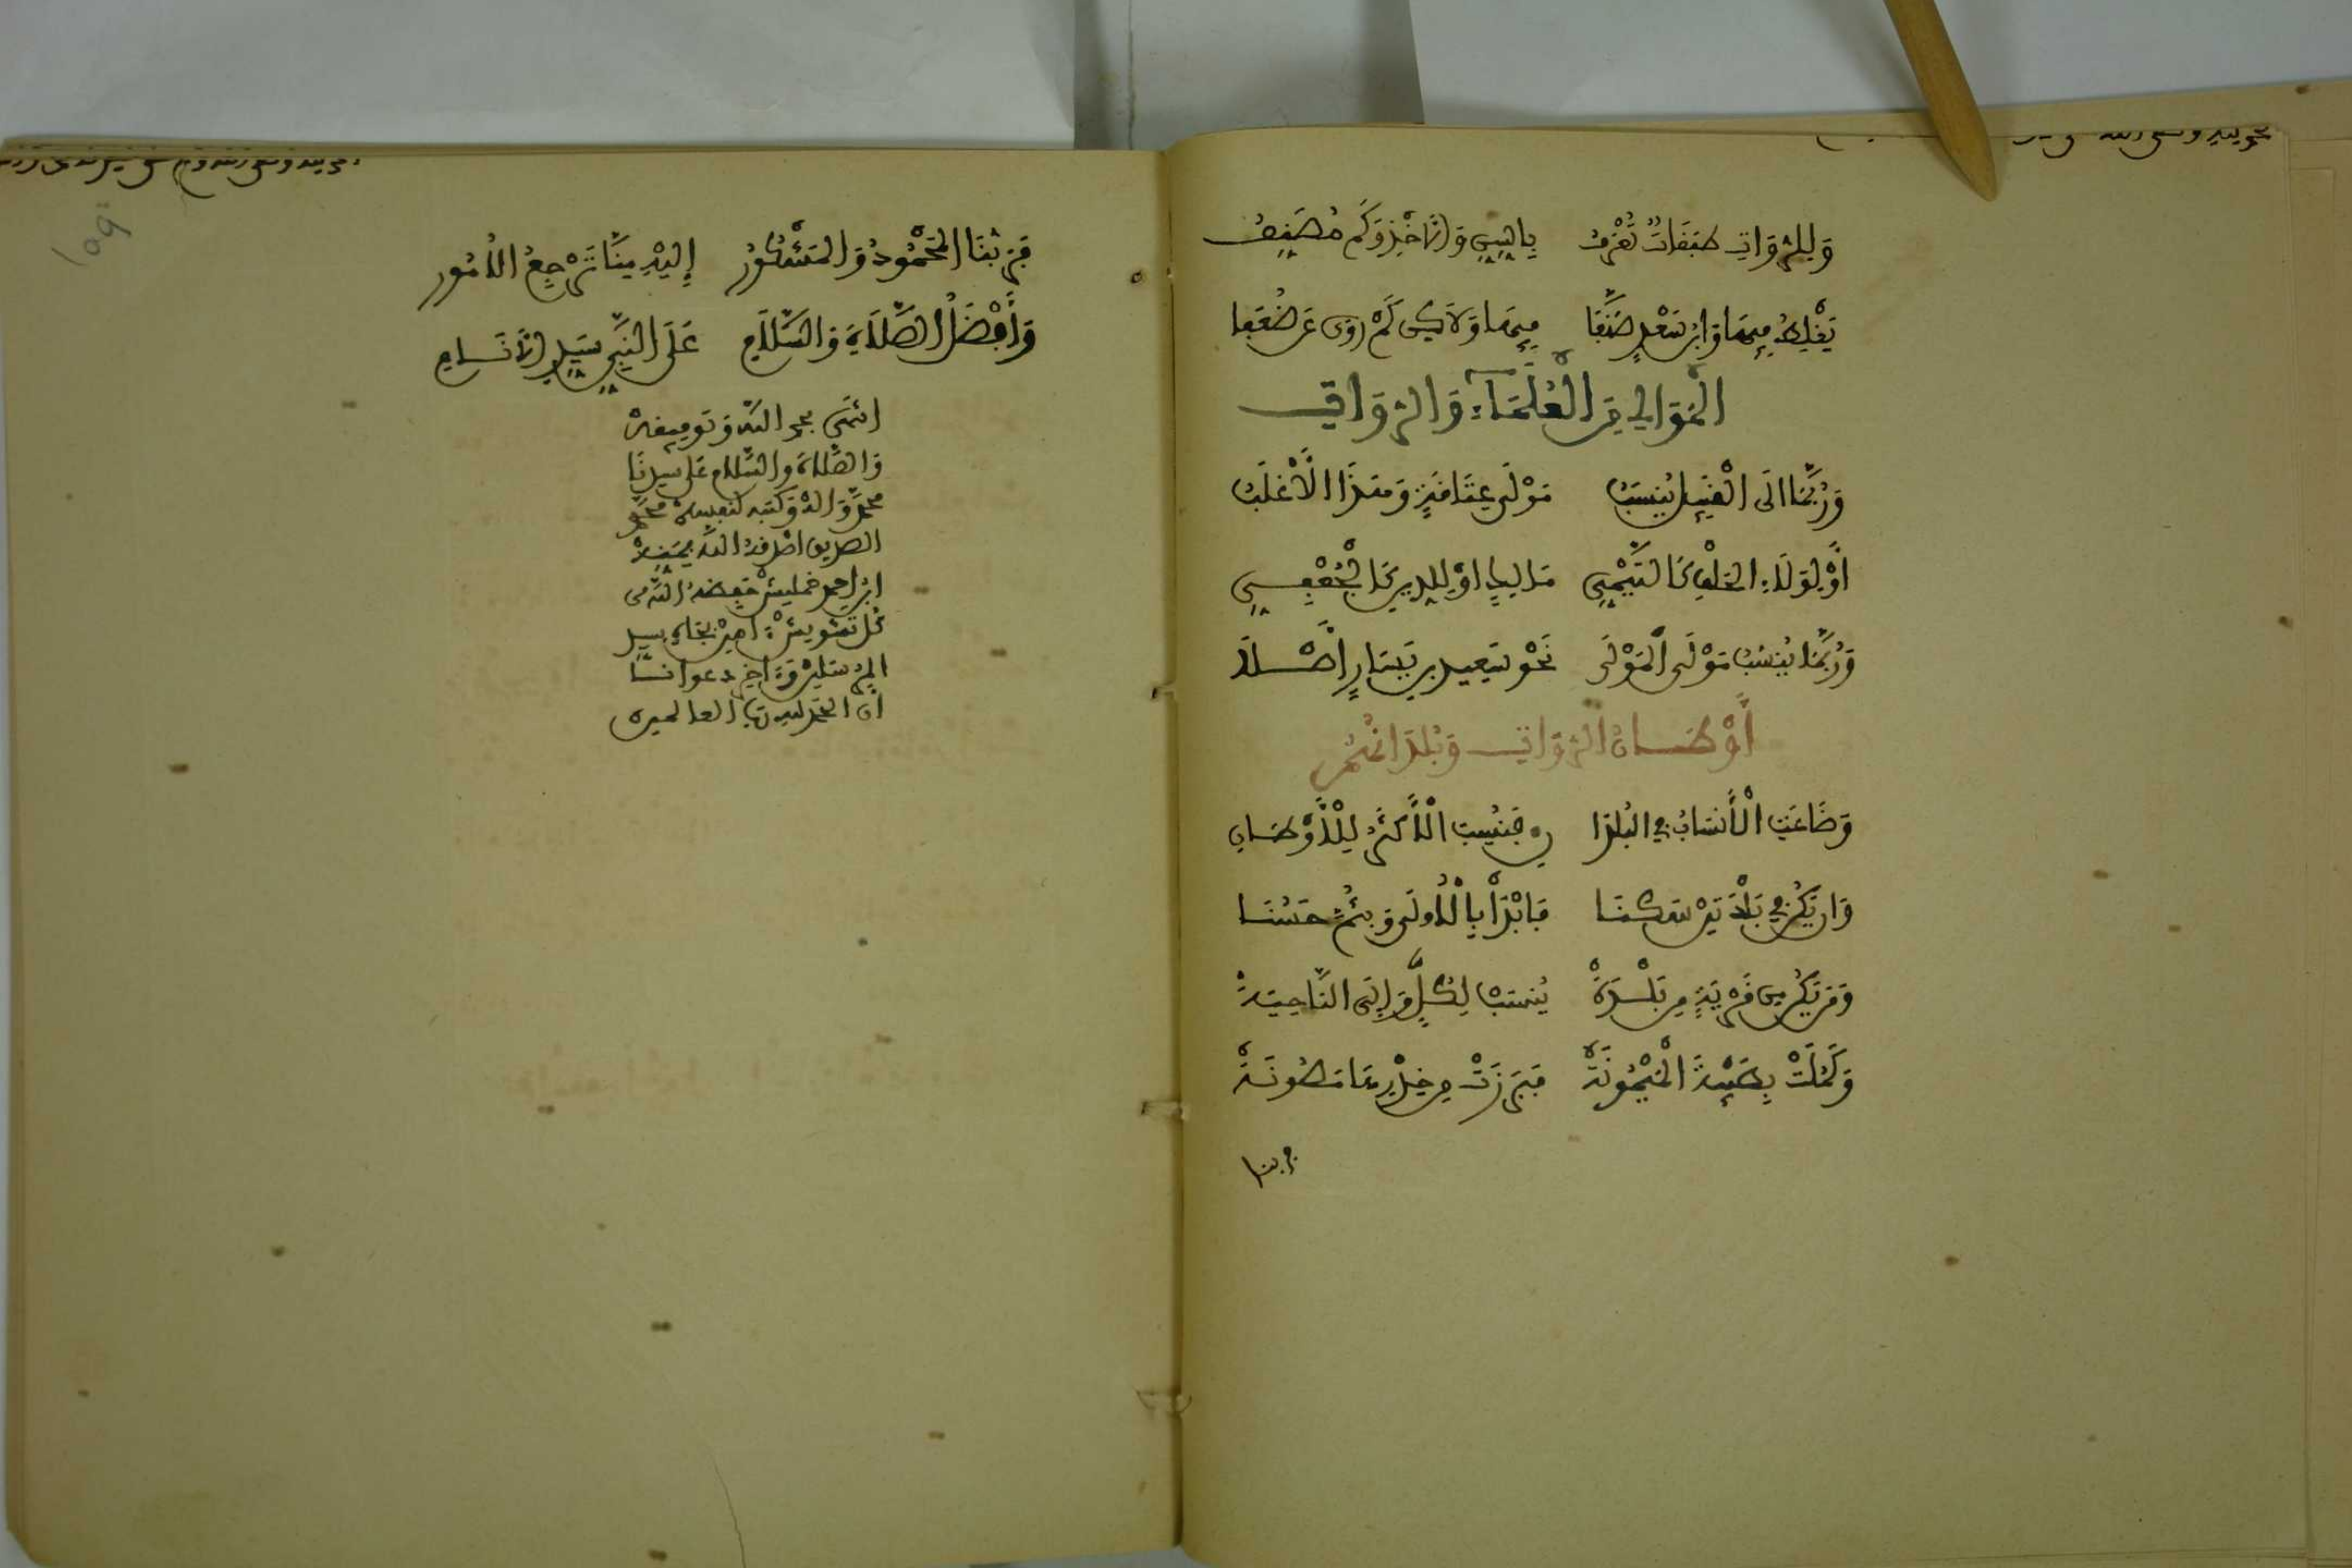 وَلِلرُّوَاةِ طَبَقَاتٌ تُعْرَفُ بِالسِّنِّ وَالْأَخْذِ وَكَمْ مُصَنِّفُ
يَغْلِطُ فِيهَا وَابْنُ سَعْدٍ صَنَّفَا فِيهَا وَلَاكِنْ كَمْ رَوَى عَنْ ضُعَفَا
الْمَوَالِي مِنَ الْعُلَمَاءِ وَالرُّوَاةِ
وَرُبَّمَا الَى الْقَبِيلِ يُنْسَبُ مَوْلَى عَتَاقَةٍ وَهَذَا الْأَغْلَبُ
أَوْ لِوَلَاءِ الْحَلْفِ كَالتَّيْمِيِّ مَالِكٍ اوْ لِلدِّينِ كَالْجُعْفِيِّ
وَرُبَّمَا يُنْسَبُ مَوْلَى الْمَوْلَى نَحْوُ سَعِيدِ بْنِ يَسَارٍ أَصْلَا
أَوْطَانُ الرُّوَاةِ وَبُلْدَانُهُمْ
وَضَاعَتِ الْأَنْسَابُ فِي الْبُلْدَا نِ فَنُسِبَ الْأَكْثَرُ لِلْأَوْطَانِ
وَإن يَكُنْ فِي بَلْدَتَيْنِ سَكَنَا فَابْدَأْ بِالْأُولَى وَبِثُمَّ حَسُنَا
وَمَنْ يَكُنْ مِنْ قَرْيَةٍ مِنْ بَلْدَةْ يُنْسَبْ لِكُلٍّ وَإِلَى النَّاحِيَةْ
وَكَمُلَتْ بِطَيْبَةَ الْمَيْمُونَةْ فَبَرَزَتْ مِنْ خِدْرِهَا مَصُونَةْ
فربنا
فَرَبُّنَا الْمَحْمُودُ وَالْمَشْكُورُ إِلَيْهِ مِنَّا تَرْجِعُ الْأُمُورُ
وَأَفْضَلُ الصَّلَاةِ وَالسَّلَامِ عَلَى النَّبِيِّ سَيِّدِ الْأَنَامِ
انتهى بحمد الله وتوفيقه
والصلاة والسلام على سيدنا
محمد وَآله وكتبه لنفسه محمد
الصديق الله
ابن احمد حفظه الله من
كل تشويش امين بجاه سيد
المرسلين وَآخر دعوانا
أن الحمد لله رب العالمين